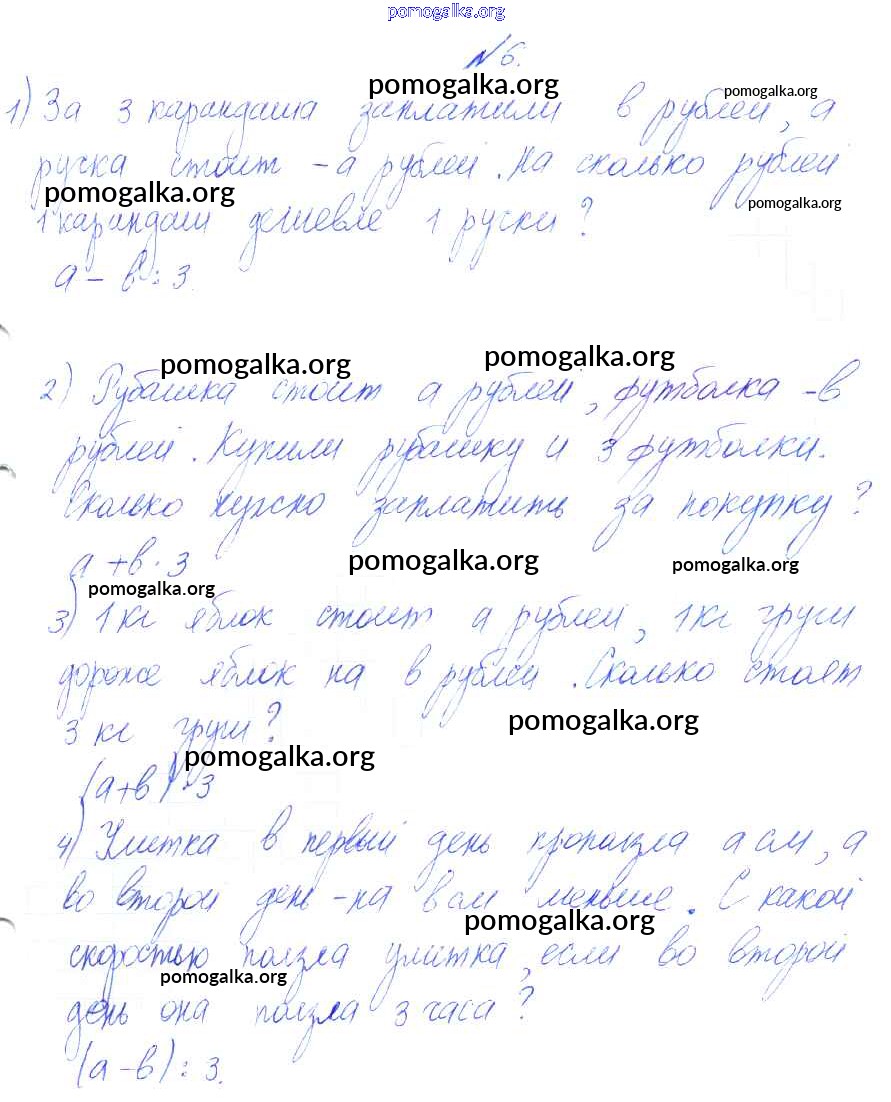 pomogalka.org
№ 6.
pomogalka.org
pomogalka.org
1) За 3 карандаша заплатили в рублей, а
ручка стоит - а рублей. На сколько рублей
pomogalka.org
pomogalka.org
1 карандаш дешевле 1 ручки?
а - в : 3.
pomogalka.org
pomogalka.org
2) Рубашка стоит а рублей, футболка - в
рублей. Купили рубашку и 3 футболки.
Сколько нужно заплатить за покупку?
а + в · 3
pomogalka.org
pomogalka.org
pomogalka.org
3) 1 кг яблок стоит а рублей, 1 кг груш
дороже яблок на в рублей. Сколько стоят
3 кг груш?
pomogalka.org
pomogalka.org
(а + в) · 3
4) Улитка в первый день проползла а см, а
во второй день - на в см меньше. С какой
pomogalka.org
скоростью ползла улитка, если во второй
pomogalka.org
день она ползла 3 часа?
(а - в) : 3.